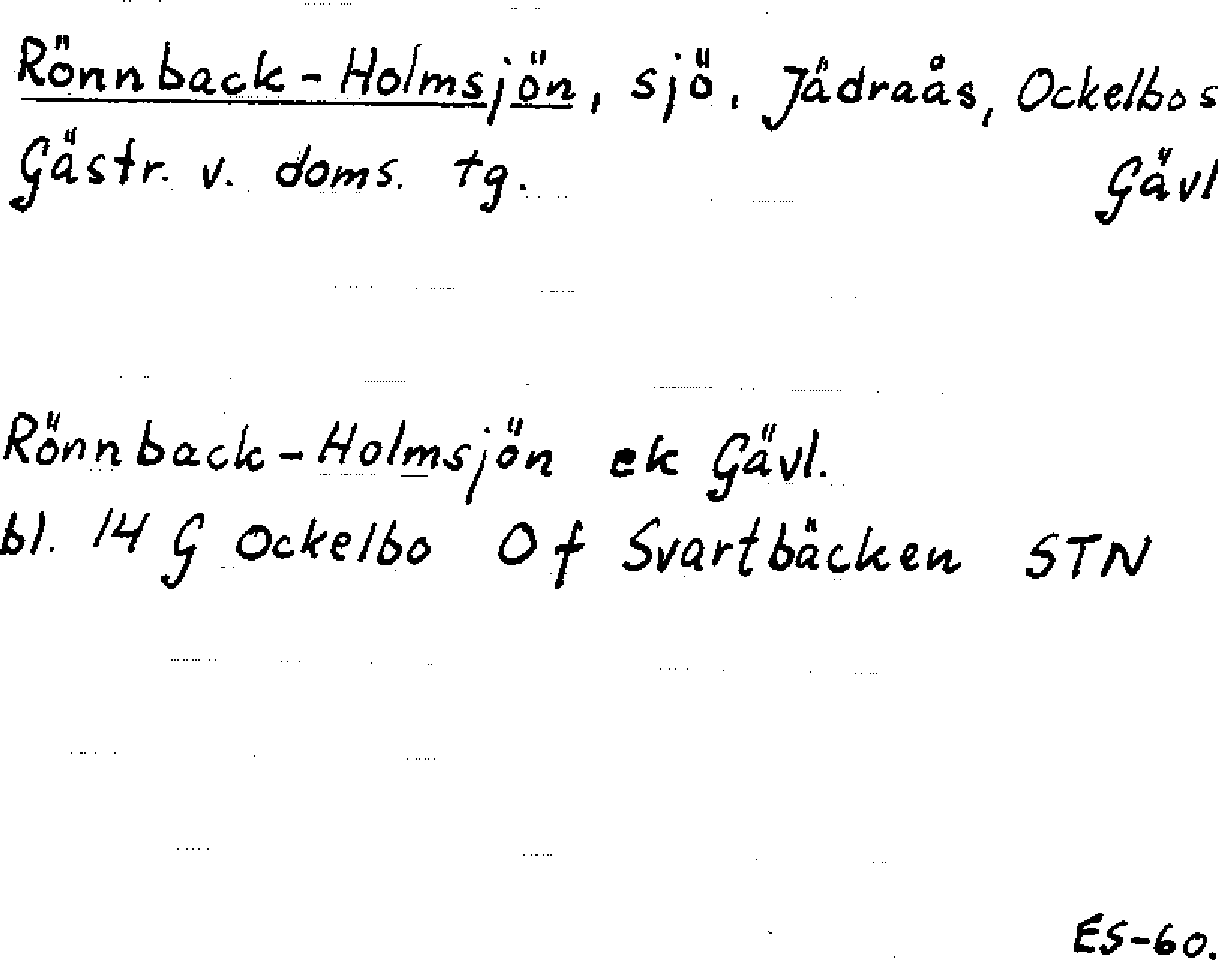 Rönnback-Holmsjön, sjö. Jädraås, Ockelbo s
Gästr. v. doms. tg. Gävl
Rönnback-Holmsjön ek Gävl.
bl. 14 G Ockelbo 0 f Svartbäcken STN
ES-60.